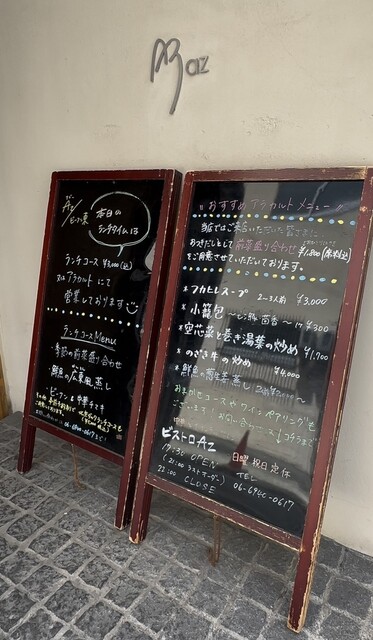 Az
Az/
ビーフン東
本日の
ランチタイムは
ランチコース ¥3,000(込)
又は アラカルトにて
営業しております
ランチコースMenu
・季節の前菜盛り合わせ
鮮魚の広東風蒸し
・ビーフン & 中華チマキ
おすすめアラカルトメニュー
当店ではご来店いただいた皆さまに
お通しとして前菜盛り合わせ ¥1,800(税込)
をご用意させていただいております。
*フカヒレスープ 2~3人前 ¥3,000
*小籠包 ¥300
*空芯菜と巻き湯葉の炒め ¥1,700
*のざき牛の炒め ¥4,000
*鮮魚の蒸し
おまかせコースやワインペアリングも
ございます! お問い合わせはコチラまで
ビストロAz 日曜 祝日 定休
17:30 OPEN TEL
(21:00 ラストオーダー) 06-6940-0617
22:00 CLOSE